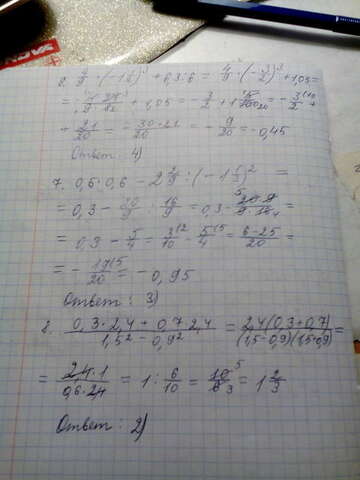 6. 4/9 · (-1 1/2)³ + 6,3:6 = 4/9 · (-3/2)³ + 1,05 =
+ 1,05 = -3/2 + 1 5/100 20 = -3/2 (10 +
+ 21/20 = -30+21/20 = -9/20 = -0,45
Ответ: 4)
7. 0,5·0,6 - 2 2/9 : (-1 1/3)² =
= 0,3 - 20/9 : 16/9 = 0,3 - 5 20·9/9·16 4 =
= 0,3 - 5/4 = 3/10 (2 - 5/4 (5 = 6-25/20 =
= - 19/20 (5 = -0,95
Ответ: 3)
8. 0,3·2,4 + 0,7·2,4/1,5² - 0,9² = 2,4(0,3+0,7)/(1,5-0,9)(1,5+0,9) =
= 2,4·1/0,6·2,4 = 1 : 6/10 = 10 5/6 3 = 1 2/3
Ответ: 2)